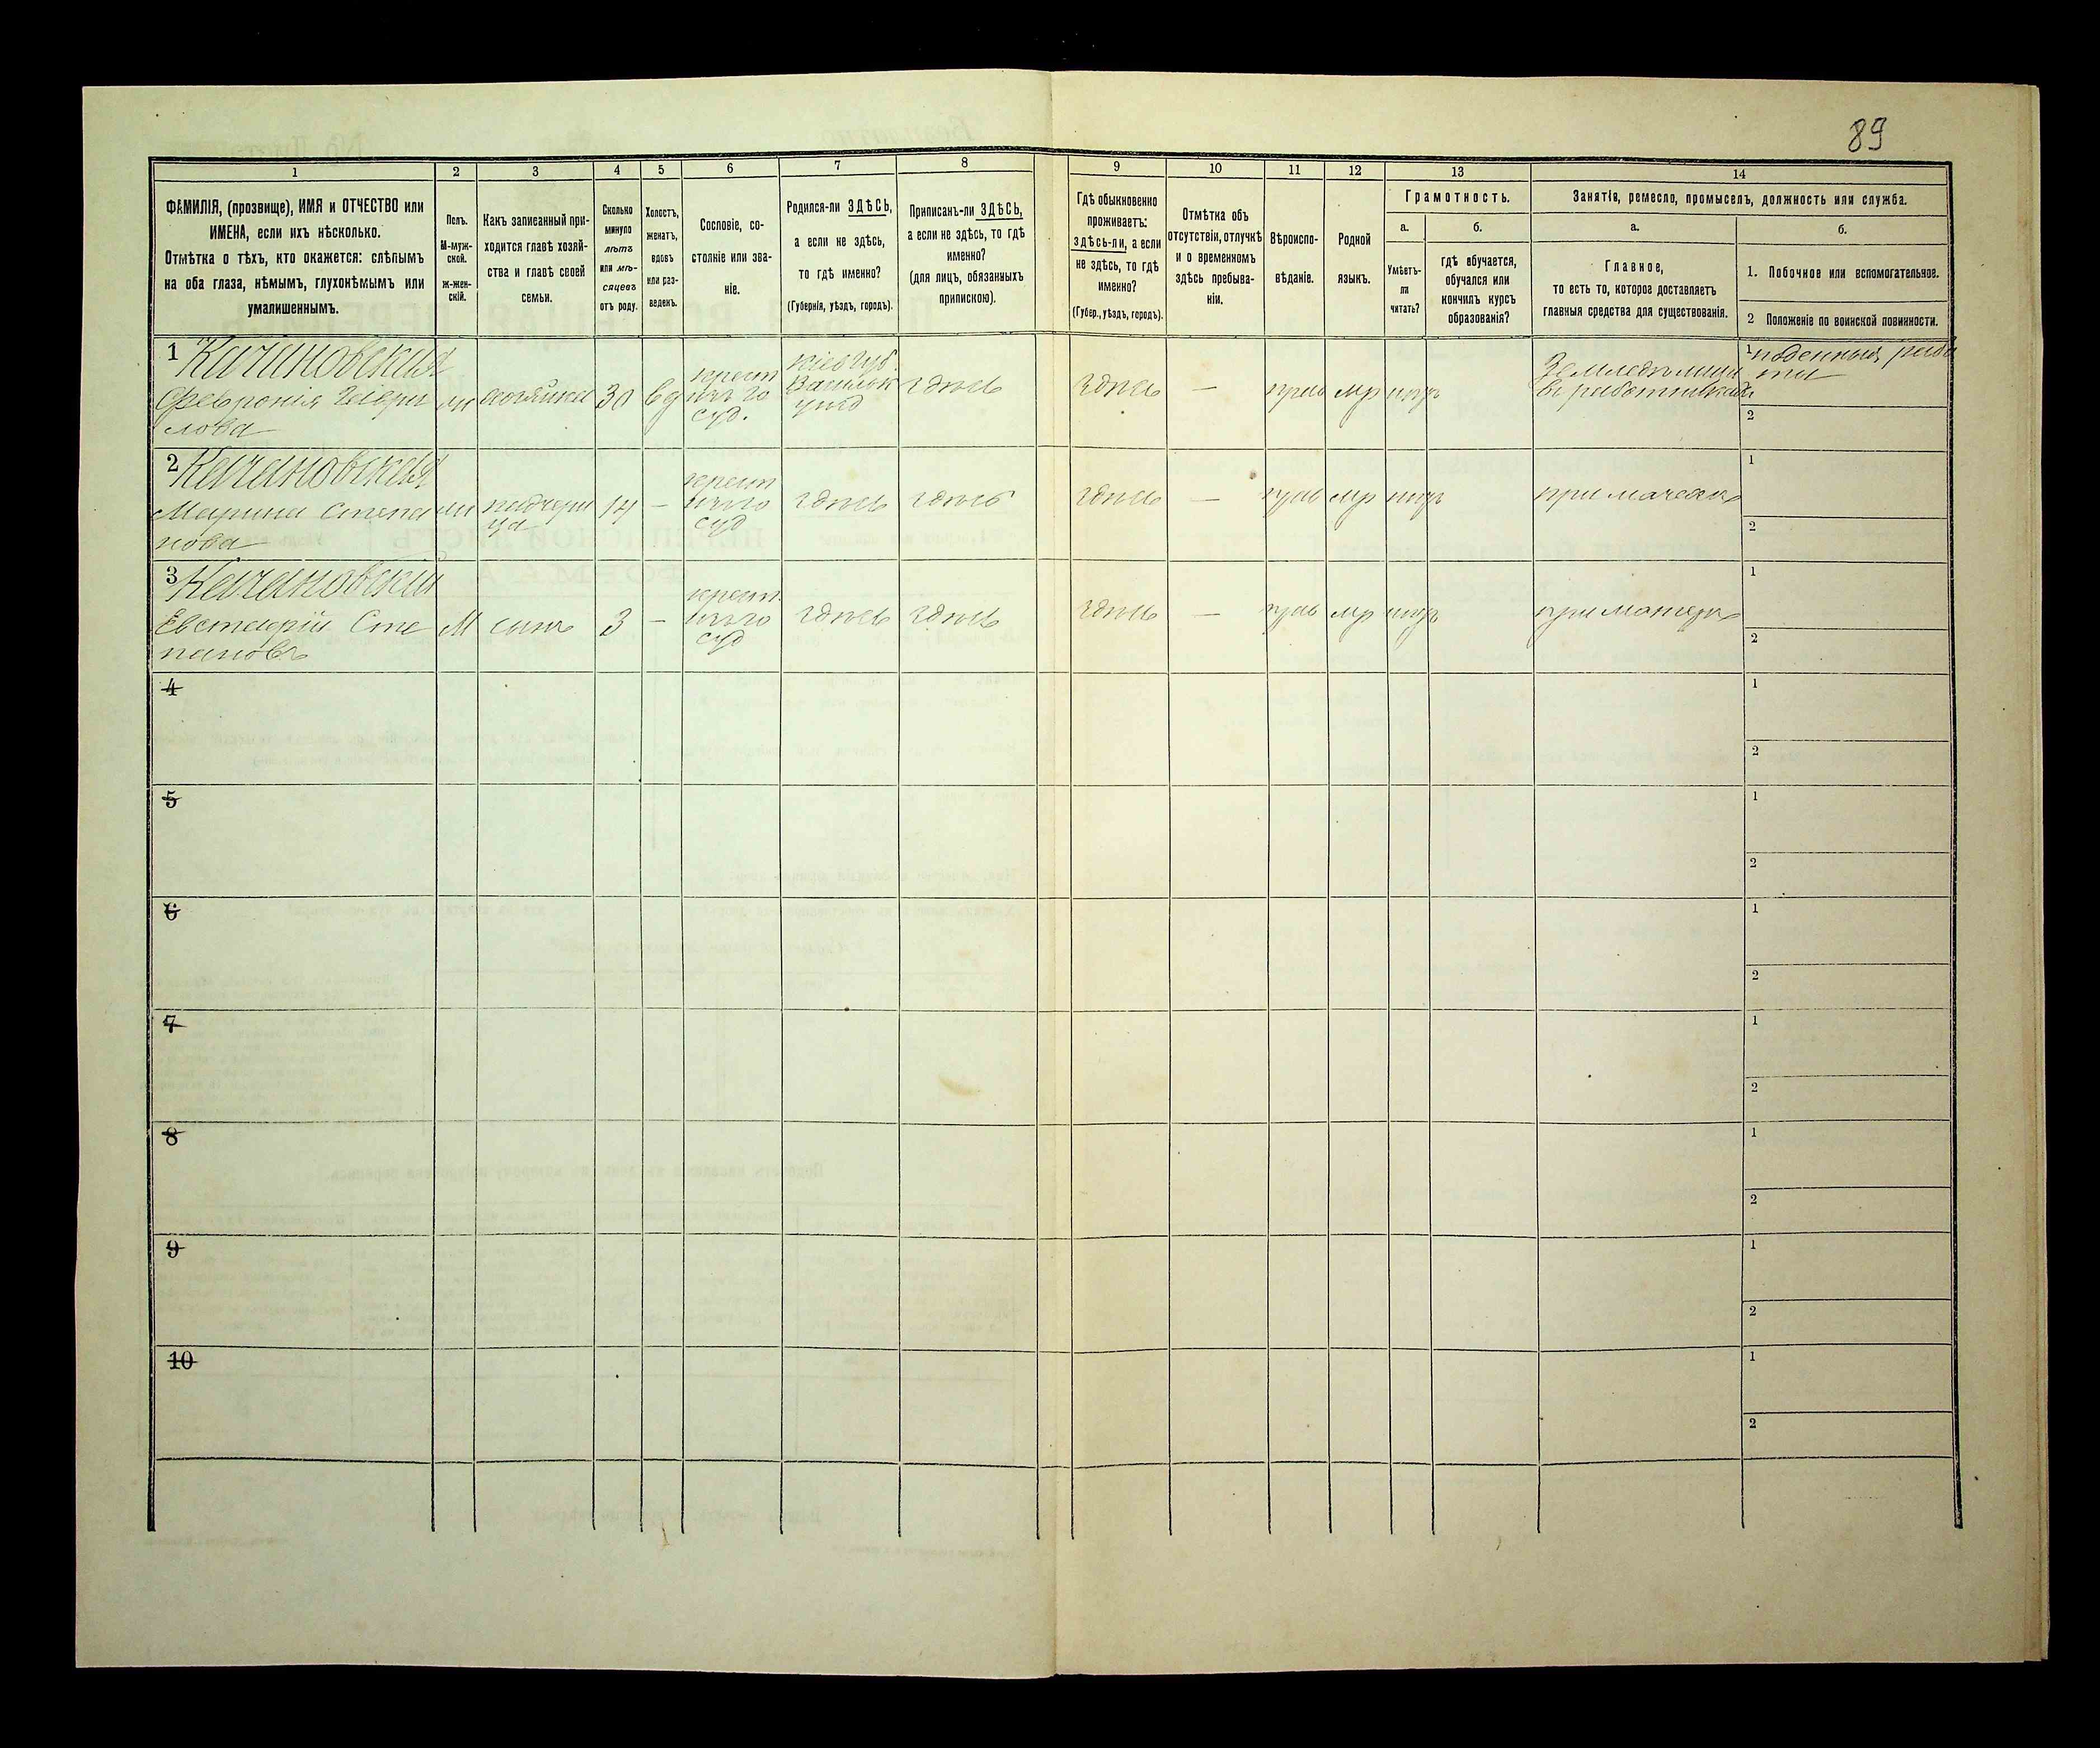 89
1
2
3
4
5
6
7
8
9
10
11
12
13
14
ФАМИЛІЯ, (прозвище), ИМЯ и ОТЧЕСТВО или
ИМЕНА, если ихъ нѣсколько.
Отмѣтка о тѣхъ, кто окажется: слѣпымъ
на оба глаза, нѣмымъ, глухонѣмымъ или
умалишеннымъ.
Полъ.
М-муж-
ской.
ж-жен-
скій.
Какъ записанный при-
ходится главѣ хозяй-
ства и главѣ своей
семьи.
Сколько
минуло
лѣтъ
или мѣ-
сяцевъ
отъ роду.
Холостъ,
женатъ,
вдовъ
или раз-
веденъ.
Сословіе, со-
стояніе или зва-
ніе.
Родился-ли ЗДѢСЬ,
а если не здѣсь,
то гдѣ именно?
(Губернія, уѣздъ, городъ).
Приписанъ-ли ЗДѢСЬ,
а если не здѣсь, то гдѣ
именно?
(для лицъ, обязанныхъ
припискою).
Гдѣ обыкновенно
проживаетъ:
здѣсь-ли, а если
не здѣсь, то гдѣ
именно?
(Губер., уѣздъ, городъ).
Отмѣтка объ
отсутствіи, отлучкѣ
и о временномъ
здѣсь пребыва-
ніи.
Вѣроиспо-
вѣданіе.
Родной
языкъ.
Грамотность.
а.
Умѣетъ-
ли
читать?
б.
гдѣ обучается,
обучался или
кончилъ курсъ
образованія?
Занятія, ремесло, промыселъ, должность или служба.
а.
Главное,
то есть то, которое доставляетъ
главныя средства для существованія.
б.
1. Побочное или вспомогательное.
2 Положеніе по воинской повинности.
1 Качановская
Февронія
лова
хозяйка
30
вд
крест
изъ го
суд.
кіев губ.
Васильк
уѣзд
здѣсь
здѣсь
—
прав
мр
нѣтъ
Земледѣлица
1 поденныя рабо
ты
2
2 Качановская
Марина Степа
нова
падчери
ца
14
—
крест
изъ го
суд
здѣсь
здѣсь
здѣсь
—
прав
мр
нѣтъ
при мачехѣ
1
2
3 Качановскій
Евстафій Сте
пановъ
М
сынъ
3
—
крест.
изъ го
суд
здѣсь
здѣсь
здѣсь
—
прав
мр
нѣтъ
при матери
1
2
4
1
2
5
1
2
6
1
2
7
1
2
8
1
2
9
1
2
10
1
2